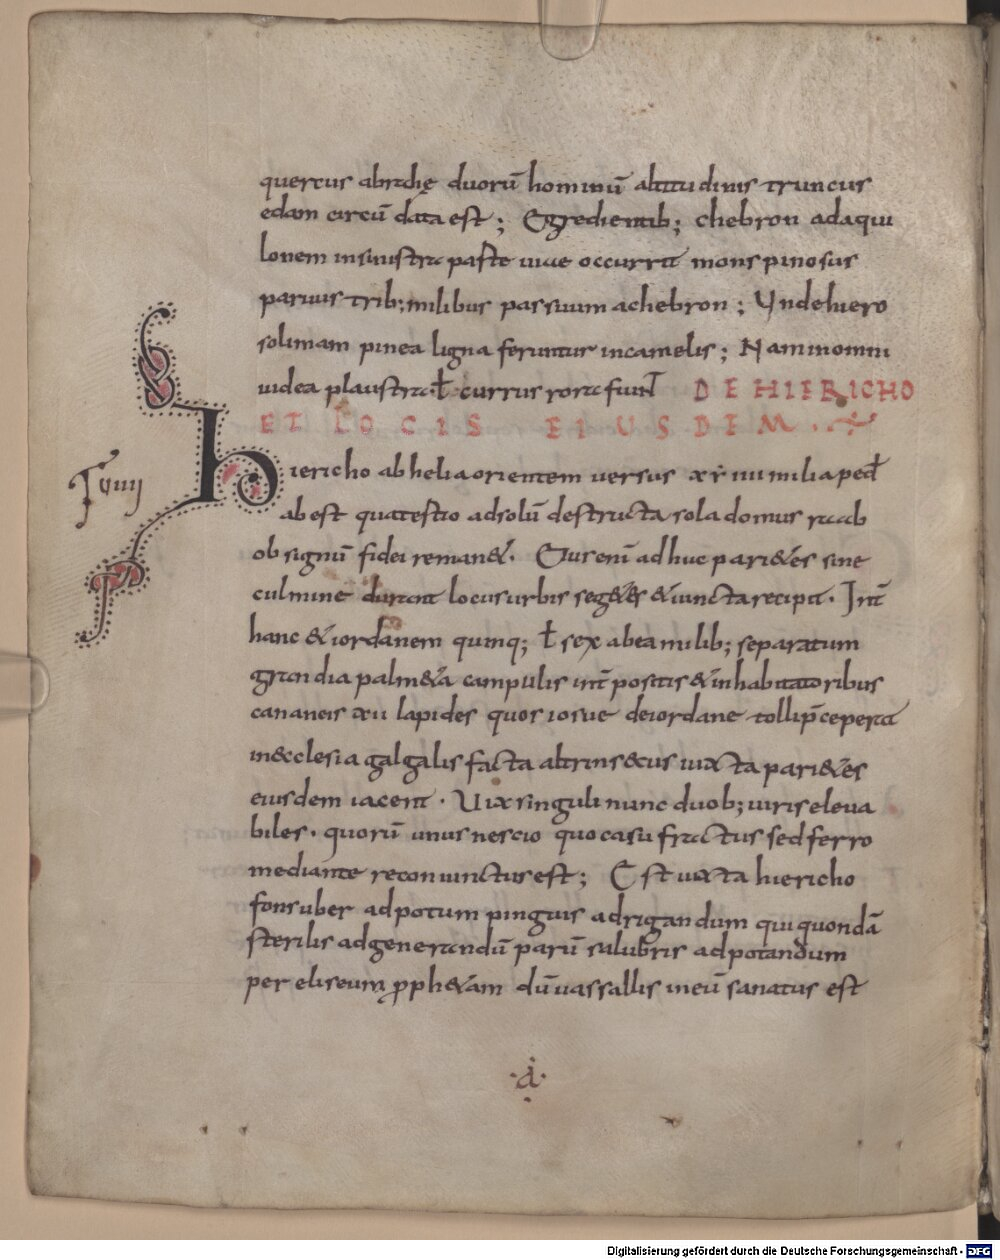 quercus abrahę duorū hominū altitudinis truncus
eclam circū data est; Egredientib; chebron ad aqui
lonem in sinistra parte uiae occurrit mons pinosus
paruus trib; milibus passuum a chebron; Unde hiero
solimam pinea ligna feruntur in camelis; Nam in omni
iudea plaustra ƚ currus rora fiunt DE HIERICHO
ET LOCIS EIUSDEM
VIIII
Hiericho ab helia orientem uersus xviiii milia ped
abest quae testio ad solū destructa sola domus raab
ob signū fidei remanet. Eius enī adhuc parietes sine
culmine durant locus urbis segetes et iuncta recipit. Int
hanc et iordanem quinq; ƚ sex ab ea milib; separatum
grandia palmeta campulis int positis et inhabitatoribus
cananeis xii lapides quos iosue de iordane tolli p̄ceperat
in ecclesia galgalis facta altrinsecus iuxta parietes
eiusdem iacent. Uix singuli nunc duob; uiris eleua
biles. quorū unus nescio quo casu fractus sed ferro
mediante reconiunctus est; Est iuxta hiericho
fons uber ad potum pinguis ad rigandum qui quondā
sterilis ad generandū parū salubris ad potandum
per eliseum prophetam dū uas sallis in eū sanatus est
·a·
Digitalisierung gefördert durch die Deutsche Forschungsgemeinschaft - DFG